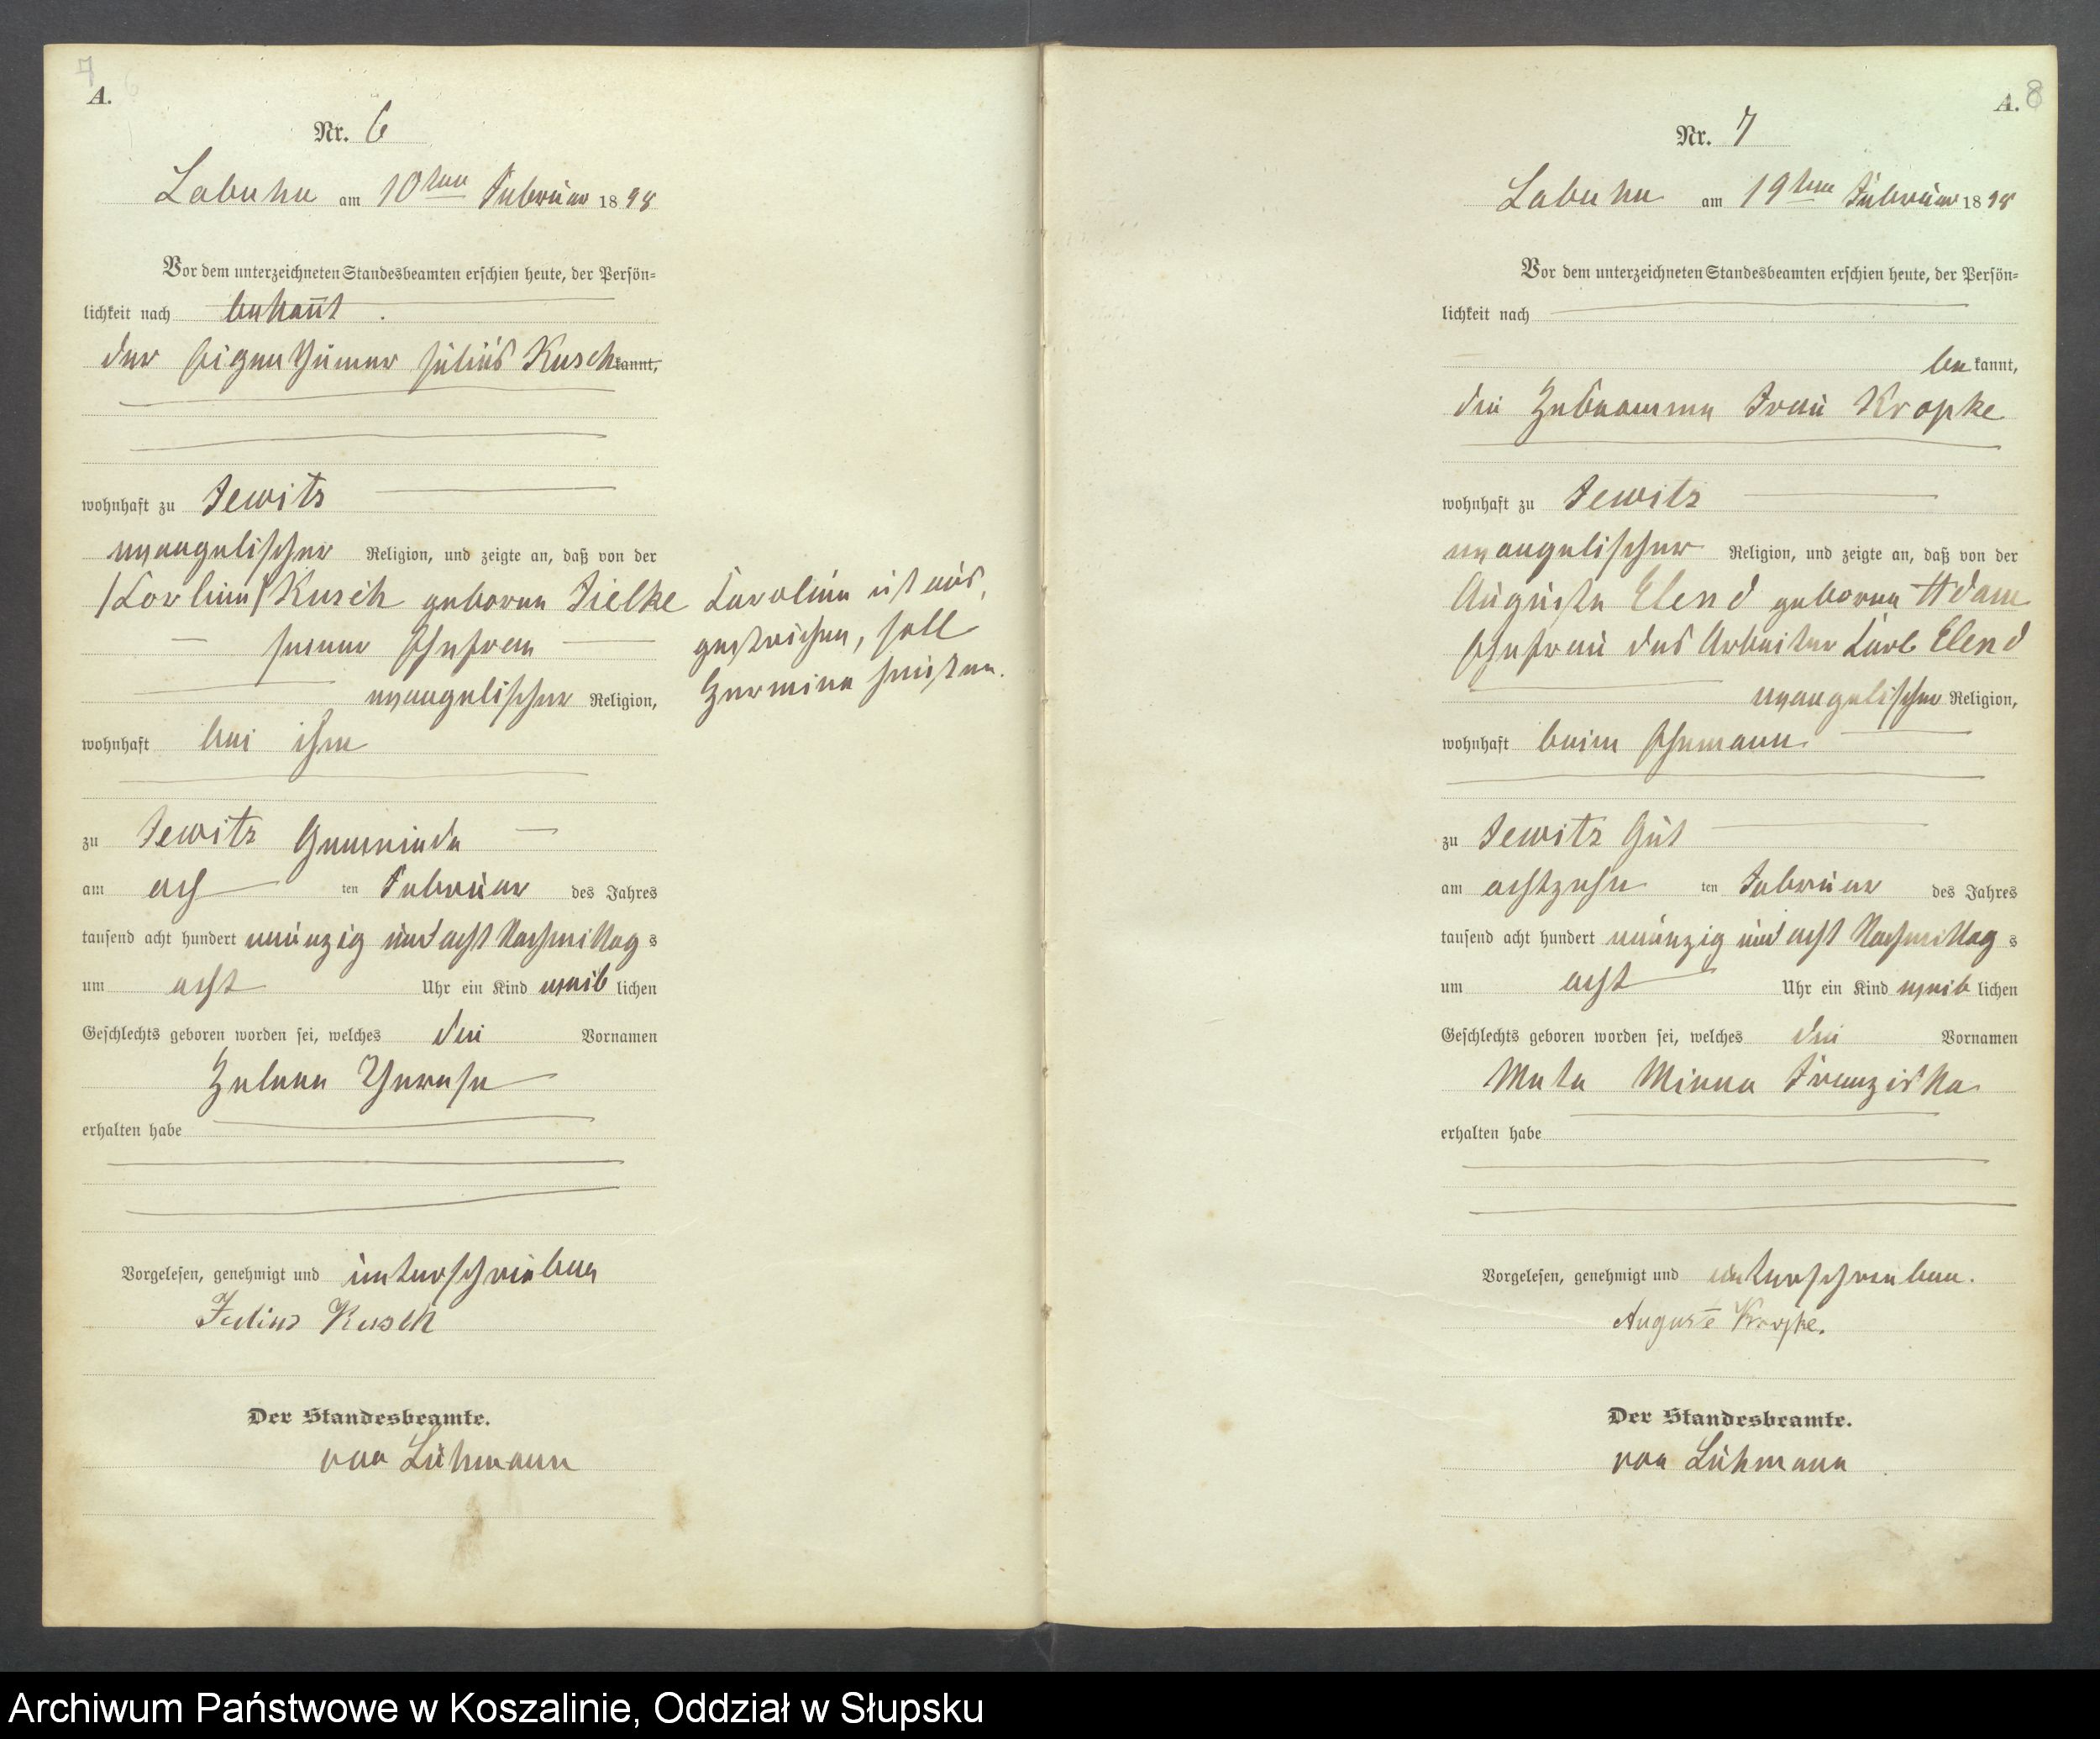 7
A.
Nr. 6
Labuhn am 10ten Februar 1898
Vor dem unterzeichneten Standesbeamten erschien heute, der Persön-
lichkeit nach bekannt.
der Eigenthümer Julius Kusch kannt,
wohnhaft zu Jewitz
evangelischer Religion, und zeigte an, daß von der
(Karline) Kusch geborne Zielke
seiner Ehefrau
evangelischer Religion,
wohnhaft bei ihm
zu Jewitz Gemeinde
am ach ten Februar des Jahres
tausend acht hundert neunzig und acht Nachmittags
um acht Uhr ein Kind weiblichen
Geschlechts geboren worden sei, welches die Vornamen
Helene Therese
erhalten habe
Vorgelesen, genehmigt und unterschrieben
Julius Kusch
Der Standesbeamte.
von Lühmann
Karoline ist aus,
gestrichen, soll
Hermine heißen.
A. 8
Nr. 7
Labuhn am 19ten Februar 1898
Vor dem unterzeichneten Standesbeamten erschien heute, der Persön-
lichkeit nach
bekannt,
die Hebamme Frau Kropke
wohnhaft zu Jewitz
evangelischer Religion, und zeigte an, daß von der
Auguste Elend geborne Adam
Ehefrau des Arbeiter Karl Elend
evangelischer Religion,
wohnhaft beim Ehemann
zu Jewitz Gut
am achtzehn ten Februar des Jahres
tausend acht hundert neunzig und acht Nachmittags
um acht Uhr ein Kind weiblichen
Geschlechts geboren worden sei, welches die Vornamen
Meta Minna Franziska
erhalten habe
Vorgelesen, genehmigt und unterschrieben.
Auguste Kropke.
Der Standesbeamte.
von Lühmann
Archiwum Państwowe w Koszalinie, Oddział w Słupsku